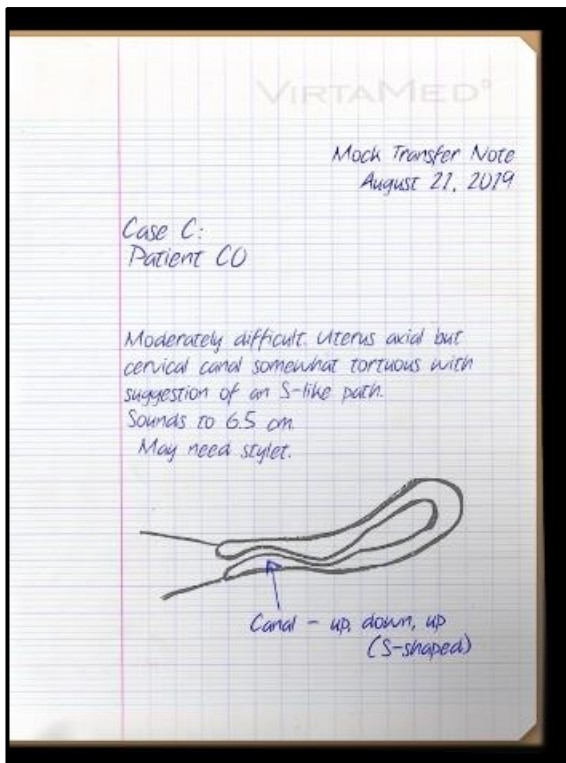 VIRTAMED
Mock Transfer Note
August 21, 2019
Case C:
Patient CO
Moderately difficult. Uterus axial but
cervical canal somewhat tortuous with
suggestion of an S-like path.
Sounds to 6.5 cm.
May need stylet.
Canal - up, down, up
(S-shaped)